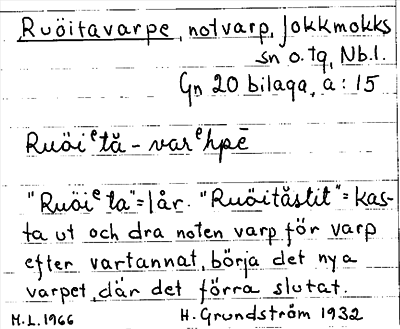 Ruöitavarpe, notvarp, Jokkmokks
sn o. tg, Nb.l.
Gn 20 bilaga, a: 15
Ruöiᵉtă - varᵉhpē
"Ruöiᵉta" = lår. "Ruöităstit" = kas-
ta ut och dra noten varp för varp
efter vartannat, börja det nya
varpet, där det förra slutat.
M.L. 1966 H. Grundström 1932